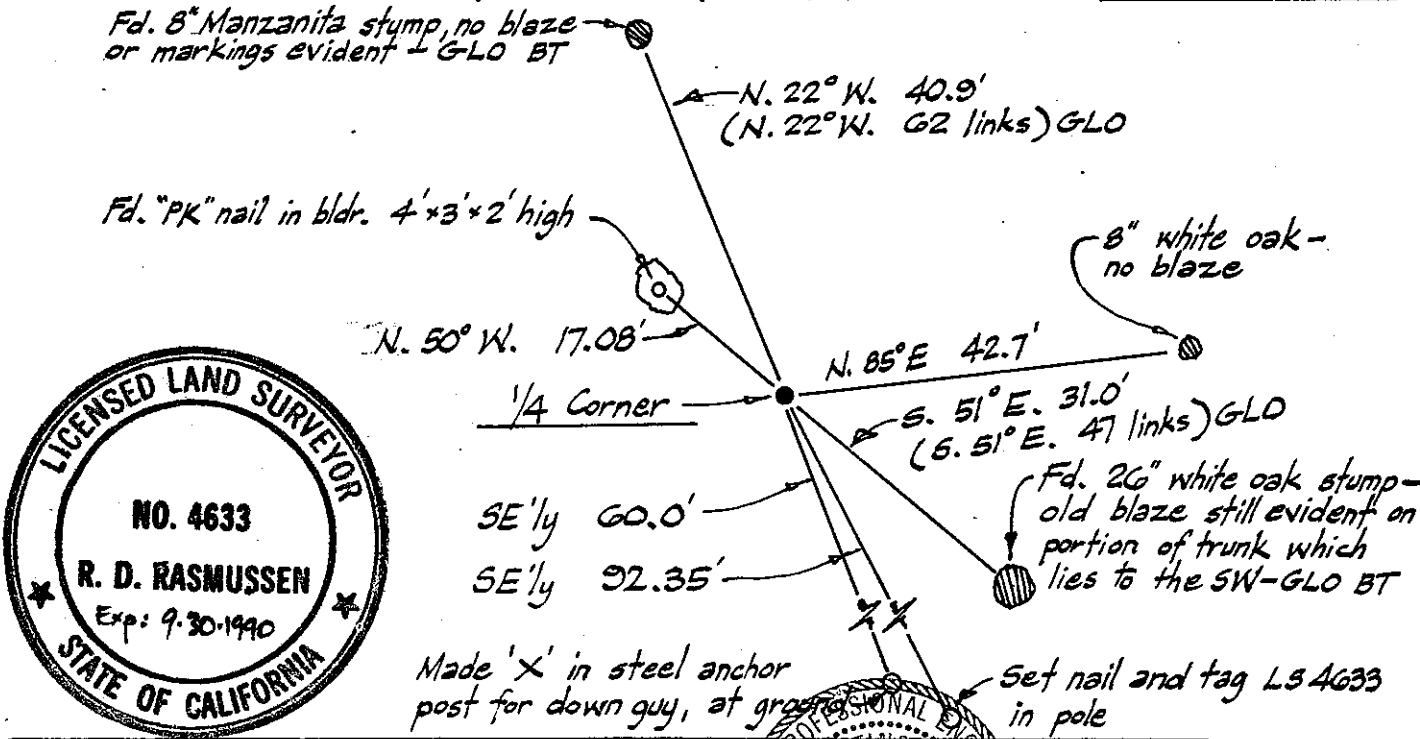 Fd. 8" Manzanita stump, no blaze
or markings evident - GLO BT
N. 22° W. 40.9'
(N. 22° W. 62 links) GLO
Fd. "PK" nail in bldr. 4'x3'x2' high
8" white oak -
no blaze
N. 50° W. 17.08'
N. 85° E 42.7'
1/4 Corner
S. 51° E. 31.0'
(S. 51° E. 47 links) GLO
Fd. 26" white oak stump -
old blaze still evident on
portion of trunk which
lies to the SW - GLO BT
SE'ly 60.0'
SE'ly 92.35'
LICENSED LAND SURVEYOR
NO. 4633
R. D. RASMUSSEN
Exp: 9.30.1990
STATE OF CALIFORNIA
Made 'X' in steel anchor
post for down guy, at
Set nail and tag LS 4633
in pole
PROFESSIONAL